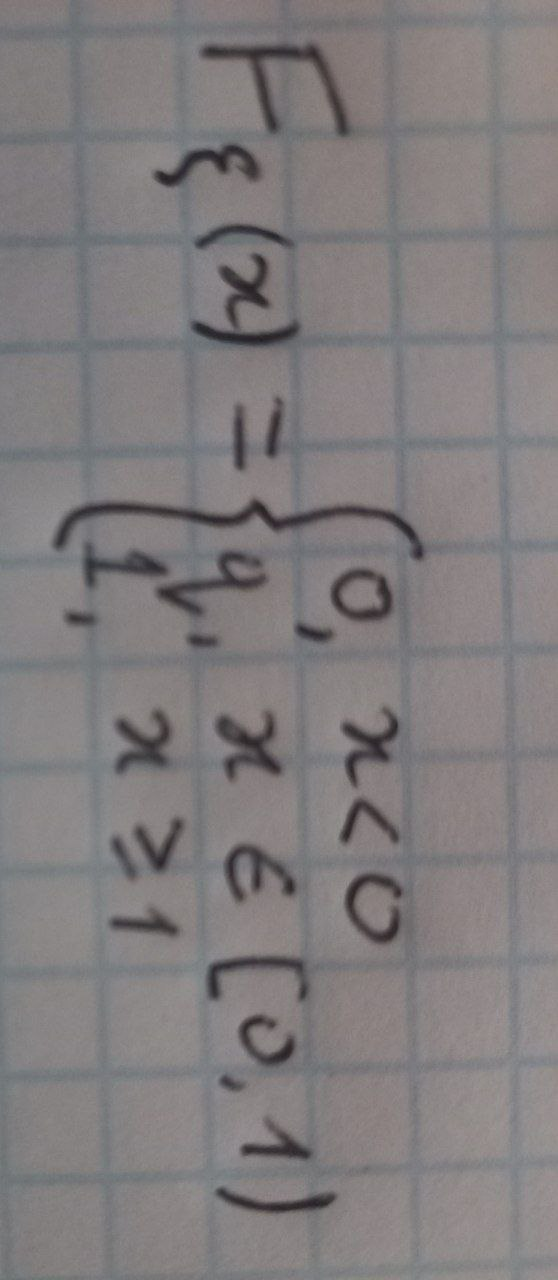 F_ξ(x) = { 0, x < 0
q, x ∈ [0, 1)
1, x ≥ 1